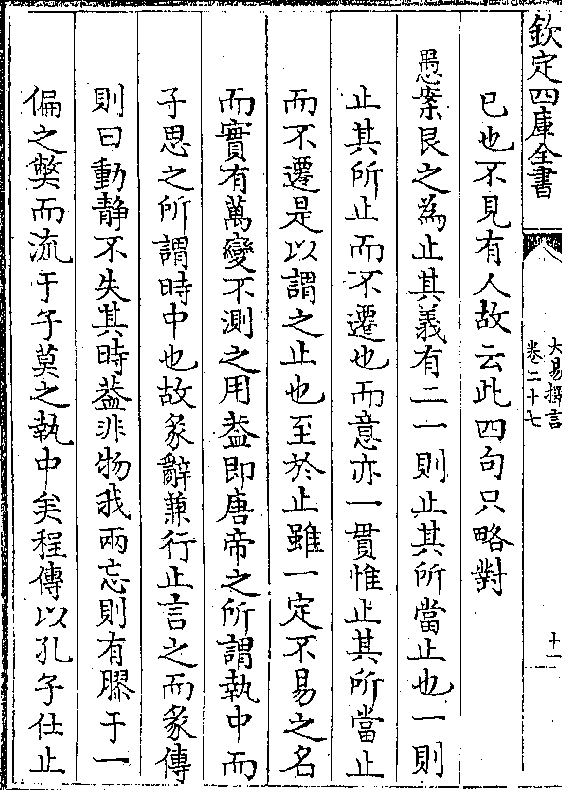 欽定四庫全書
大易擇言
卷二十七
十一
已也不見有人故云此四句只略對
愚案艮之為止其義有二一則止其所當止也一則
止其所止而不遷也而意亦一貫惟止其所當止
而不遷是以謂之止也至於止雖一定不易之名
而實有萬變不測之用葢即唐帝之所謂執中而
子思之所謂時中也故彖辭兼行止言之而彖傳
則曰動静不失其時葢非物我兩忘則有膠于一
偏之弊而流于子莫之執中矣程傳以孔子仕止